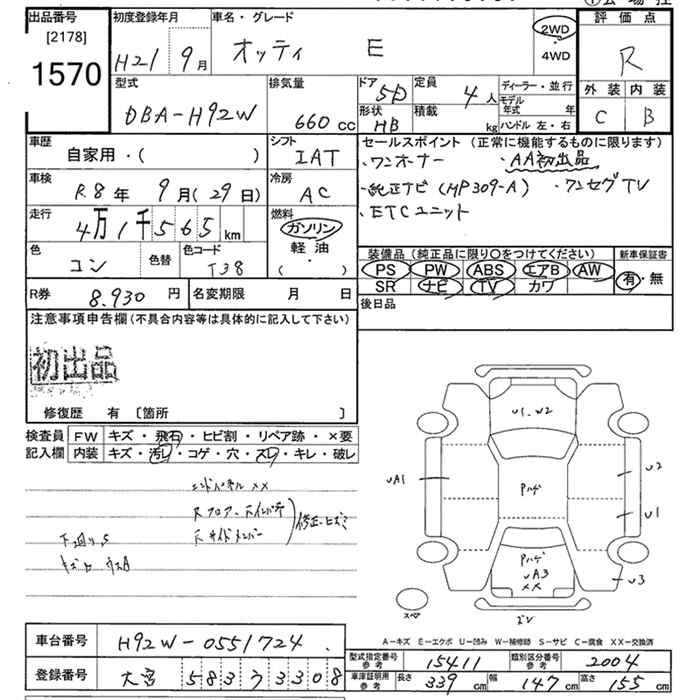 出品番号
[2178]
1570
初度登録年月
H21 9月
車名・グレード
オッティ E
2WD
・
4WD
評価点
R
外装 内装
C B
型式
DBA-H92W
排気量
660 cc
ドア
5D
形状
HB
定員
4人
積載
kg
ディーラー・並行
モデル年式 年
ハンドル 左・右
車歴
自家用・( )
シフト
IAT
車検
R8年 9月(29日)
冷房
AC
走行
4万1千565km
燃料
ガソリン
軽油
( ・ )
色
コン
色替
色コード
T38
R券 8.930円
名変期限 月 日
セールスポイント (正常に機能するものに限ります)
・ワンオーナー ・AA初出品
・純正ナビ(MP309-A) ・ワンセグTV
・ETCユニット
装備品 (純正品に限り○をつけてください)
PS PW ABS エアB AW
SR ナビ TV カワ
新車保証書
有・無
後日品
注意事項申告欄(不具合内容等は具体的に記入して下さい)
初出品
修復歴 有 〔箇所 〕
検査員記入欄
FW キズ・飛石・ヒビ割・リペア跡・×要
内装 キズ・汚レ・コゲ・穴・スレ・キレ・破レ
エンドパネル XX
Rフロア
修正・ヒズミ
下廻りS
U1.W2
UA1
Pハゲ
U2
U1
Pハゲ
UA3
XX
U3
スペア
A-キズ E-エクボ U-凹み W-補修跡 S-サビ C-腐食 XX-交換済
車台番号 H92W-0551724
登録番号 大宮 583 す 3308
型式指定番号 参考 15411
類別区分番号 参考 2004
車庫証明用 参考 長さ 339cm 幅 147cm 高さ 155cm